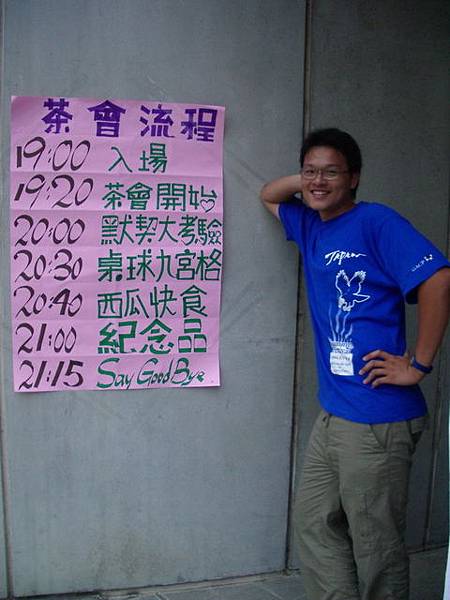 茶會流程
19:00 入場
19:20 茶會開始
20:00 默契大考驗
20:30 桌球九宮格
20:40 西瓜快食
21:00 紀念品
21:15 Say Good Bye